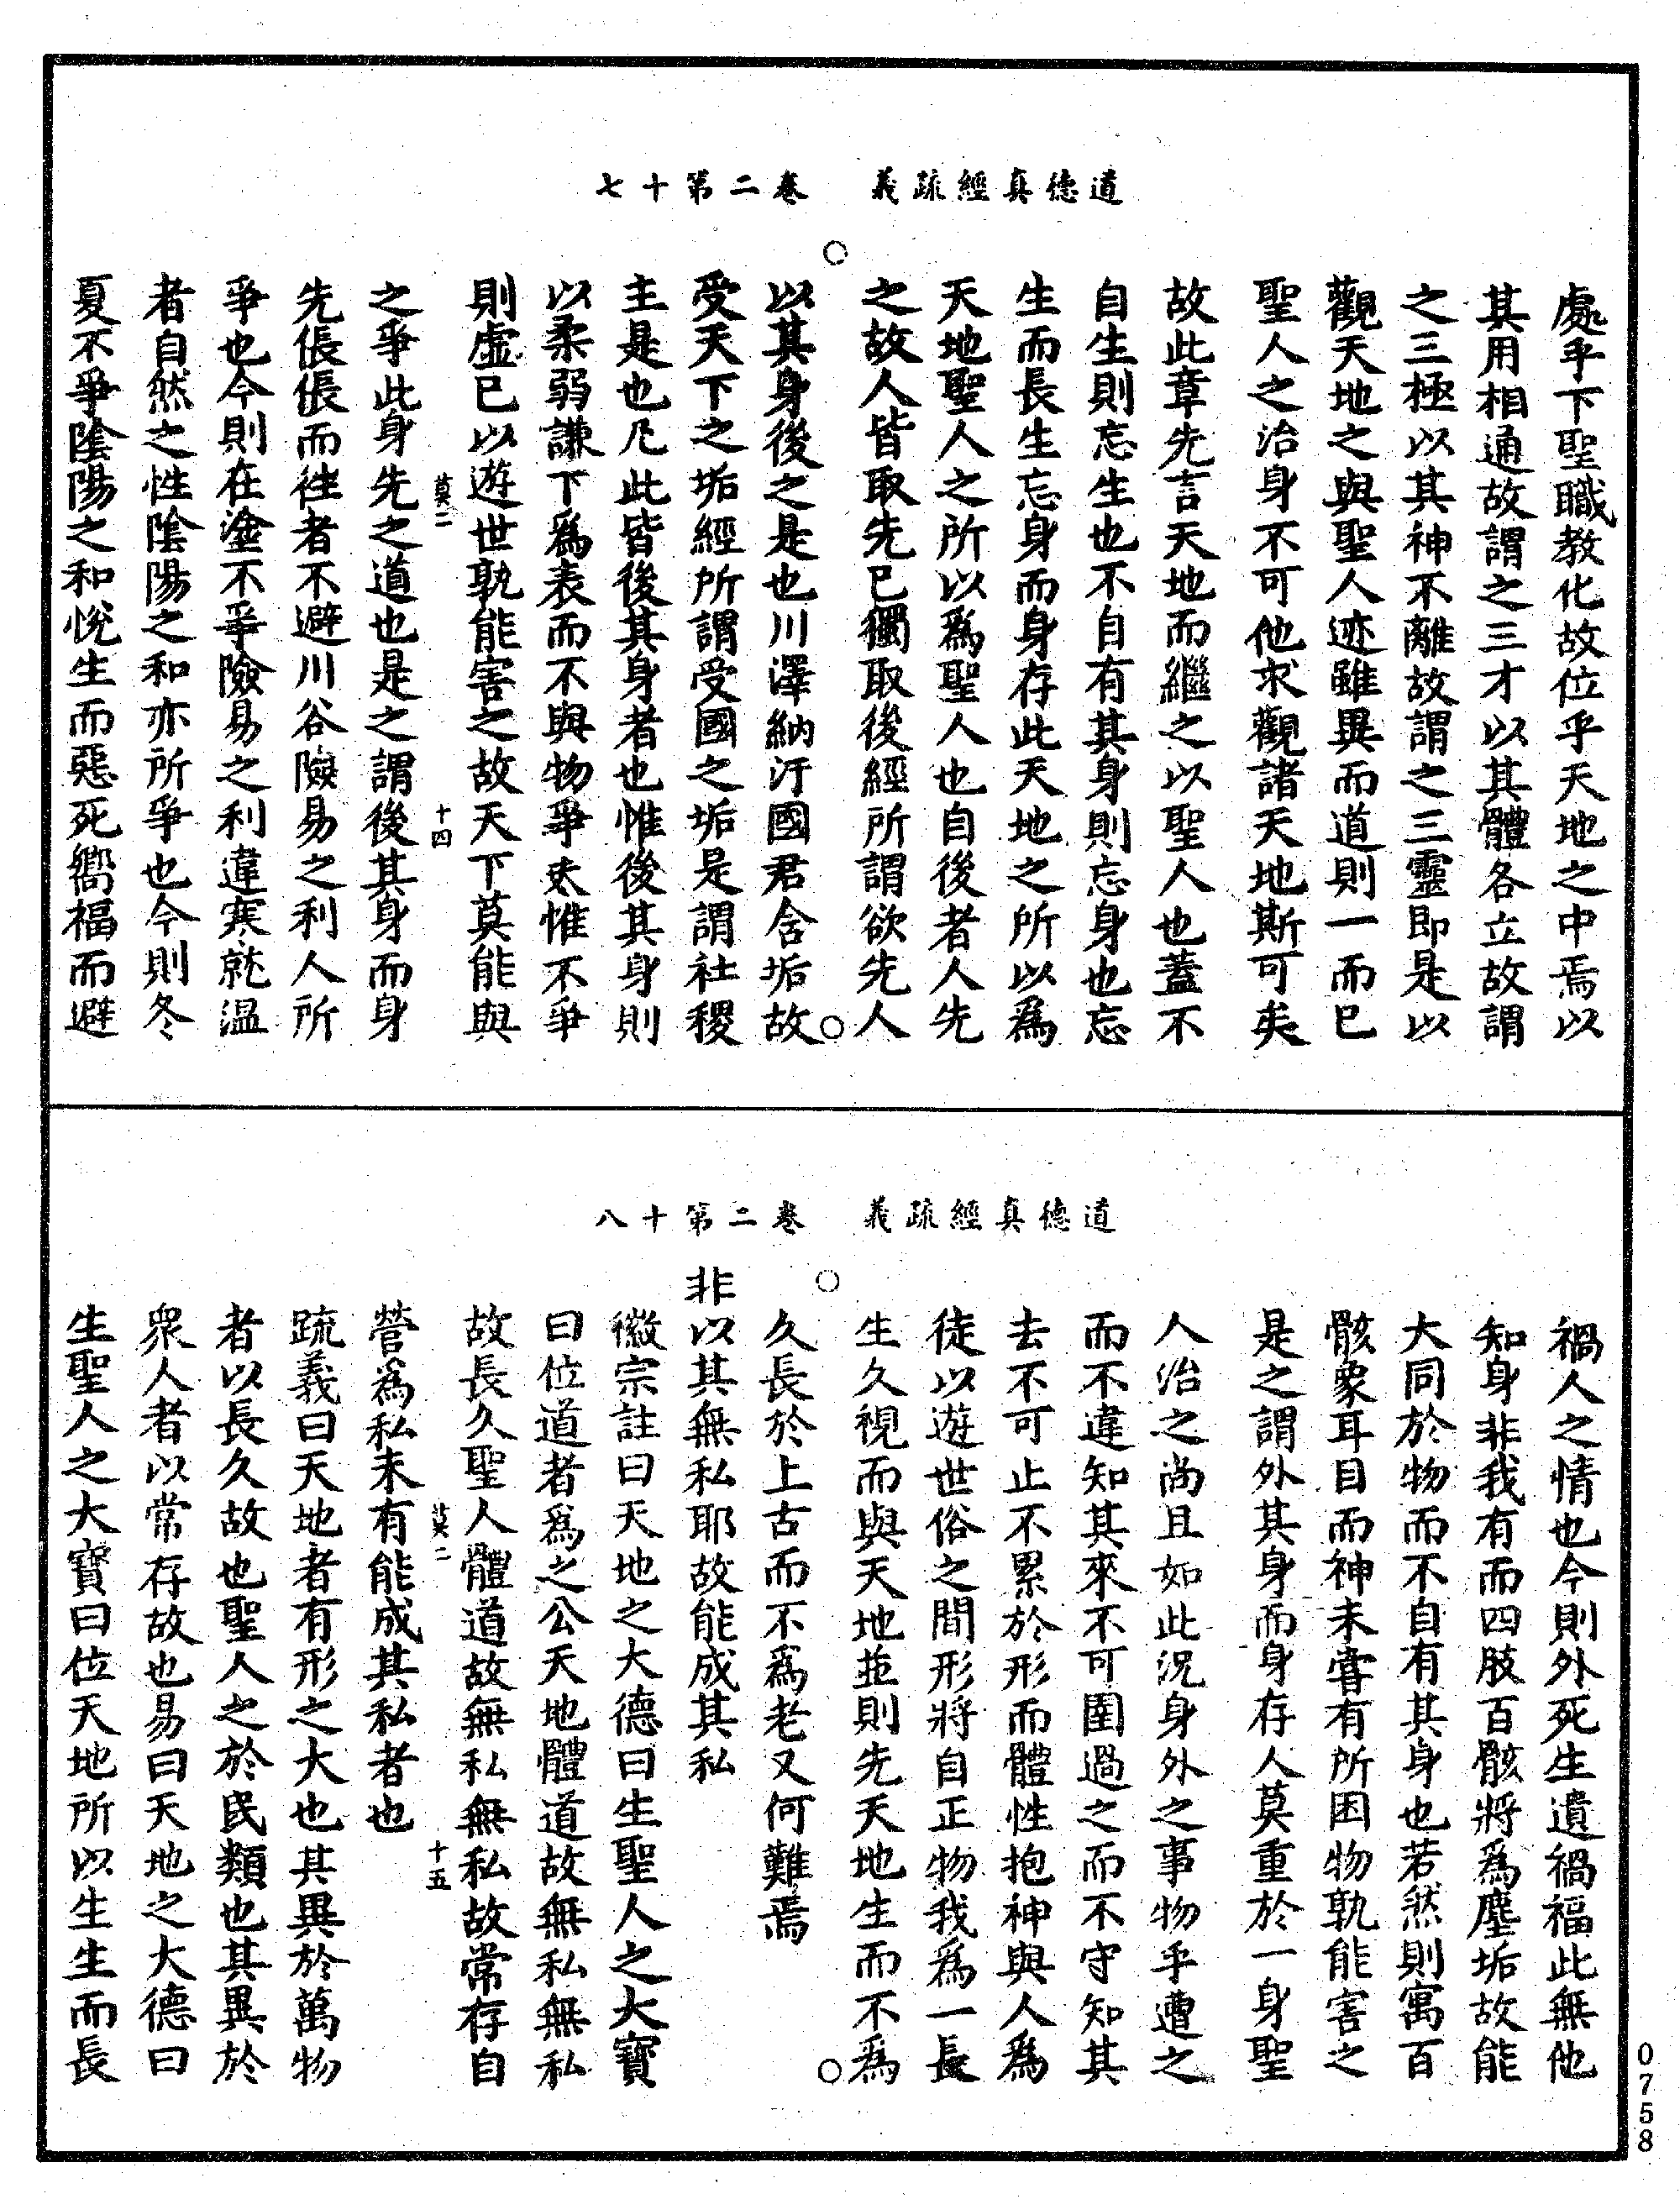 道德真經疏義　卷二第十七
處乎下聖職教化故位乎天地之中焉以
其用相通故謂之三才以其體各立故謂
之三極以其神不離故謂之三靈即是以
觀天地之與聖人迹雖異而道則一而已
聖人之治身不可他求觀諸天地斯可矣
故此章先言天地而繼之以聖人也蓋不
自生則忘生也不自有其身則忘身也忘
生而長生忘身而身存此天地之所以爲
天地聖人之所以爲聖人也自後者人先
之故人皆取先已獨取後經所謂欲先人
以其身後之是也川澤納汙國君含垢故
受天下之垢經所謂受國之垢是謂社稷
主是也凡此皆後其身者也惟後其身則
以柔弱謙下爲表而不與物爭夫惟不爭
則虛已以遊世孰能害之故天下莫能與
莫二　十四
之爭此身先之道也是之謂後其身而身
先倀倀而徃者不避川谷險易之利人所
爭也今則在塗不爭險易之利違寒就溫
者自然之性陰陽之和亦所爭也今則冬
夏不爭陰陽之和悅生而惡死嚮福而避
道德真經疏義　卷二第十八
禍人之情也今則外死生遺禍福此無他
知身非我有而四肢百骸將爲塵垢故能
大同於物而不自有其身也若然則寓百
骸象耳目而神未嘗有所困物孰能害之
是之謂外其身而身存人莫重於一身聖
人治之尚且如此況身外之事物乎遭之
而不違知其來不可圉過之而不守知其
去不可止不累於形而體性抱神與人爲
徒以遊世俗之間形將自正物我爲一長
生久視而與天地並則先天地生而不爲
久長於上古而不爲老又何難焉
非以其無私耶故能成其私
徽宗註曰天地之大德曰生聖人之大寶
曰位道者爲之公天地體道故無私無私
故長久聖人體道故無私無私故常存自
莫二　十五
營爲私未有能成其私者也
疏義曰天地者有形之大也其異於萬物
者以長久故也聖人之於民類也其異於
衆人者以常存故也易曰天地之大德曰
生聖人之大寶曰位天地所以生生而長
0758